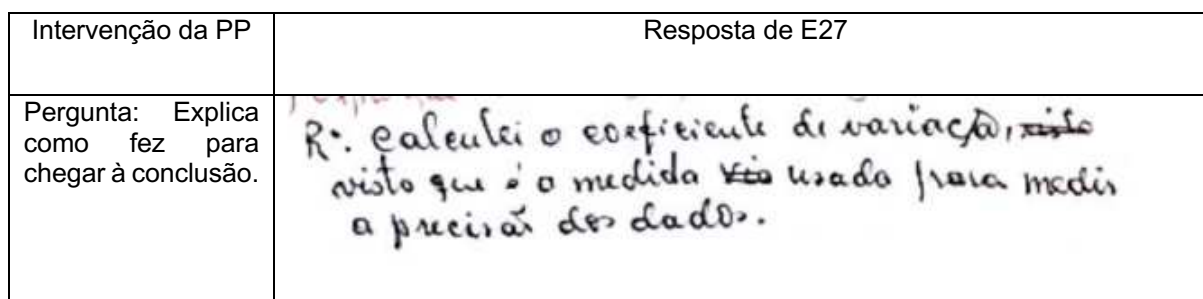 Intervenção da PP
Resposta de E27
Pergunta: Explica
como fez para
chegar à conclusão.
R: Calculei o coeficiente de variação, visto
visto que é a medida usada para medir
a precisão dos dados.